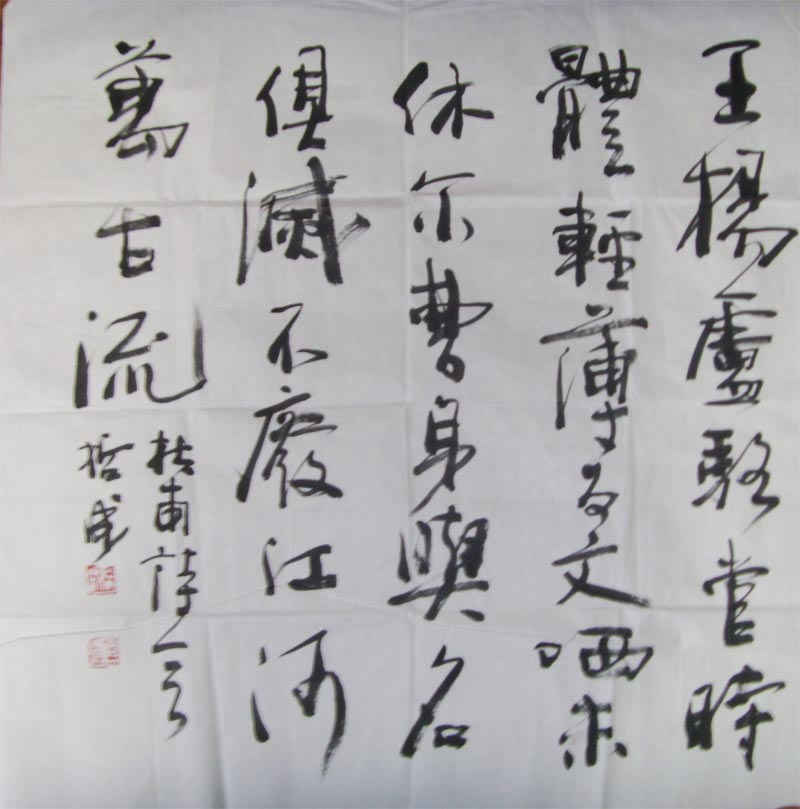 王楊盧駱當時
體輕薄为文哂未
休尔曹身與名
俱滅不廢江河
萬古流
杜甫詩
哲成